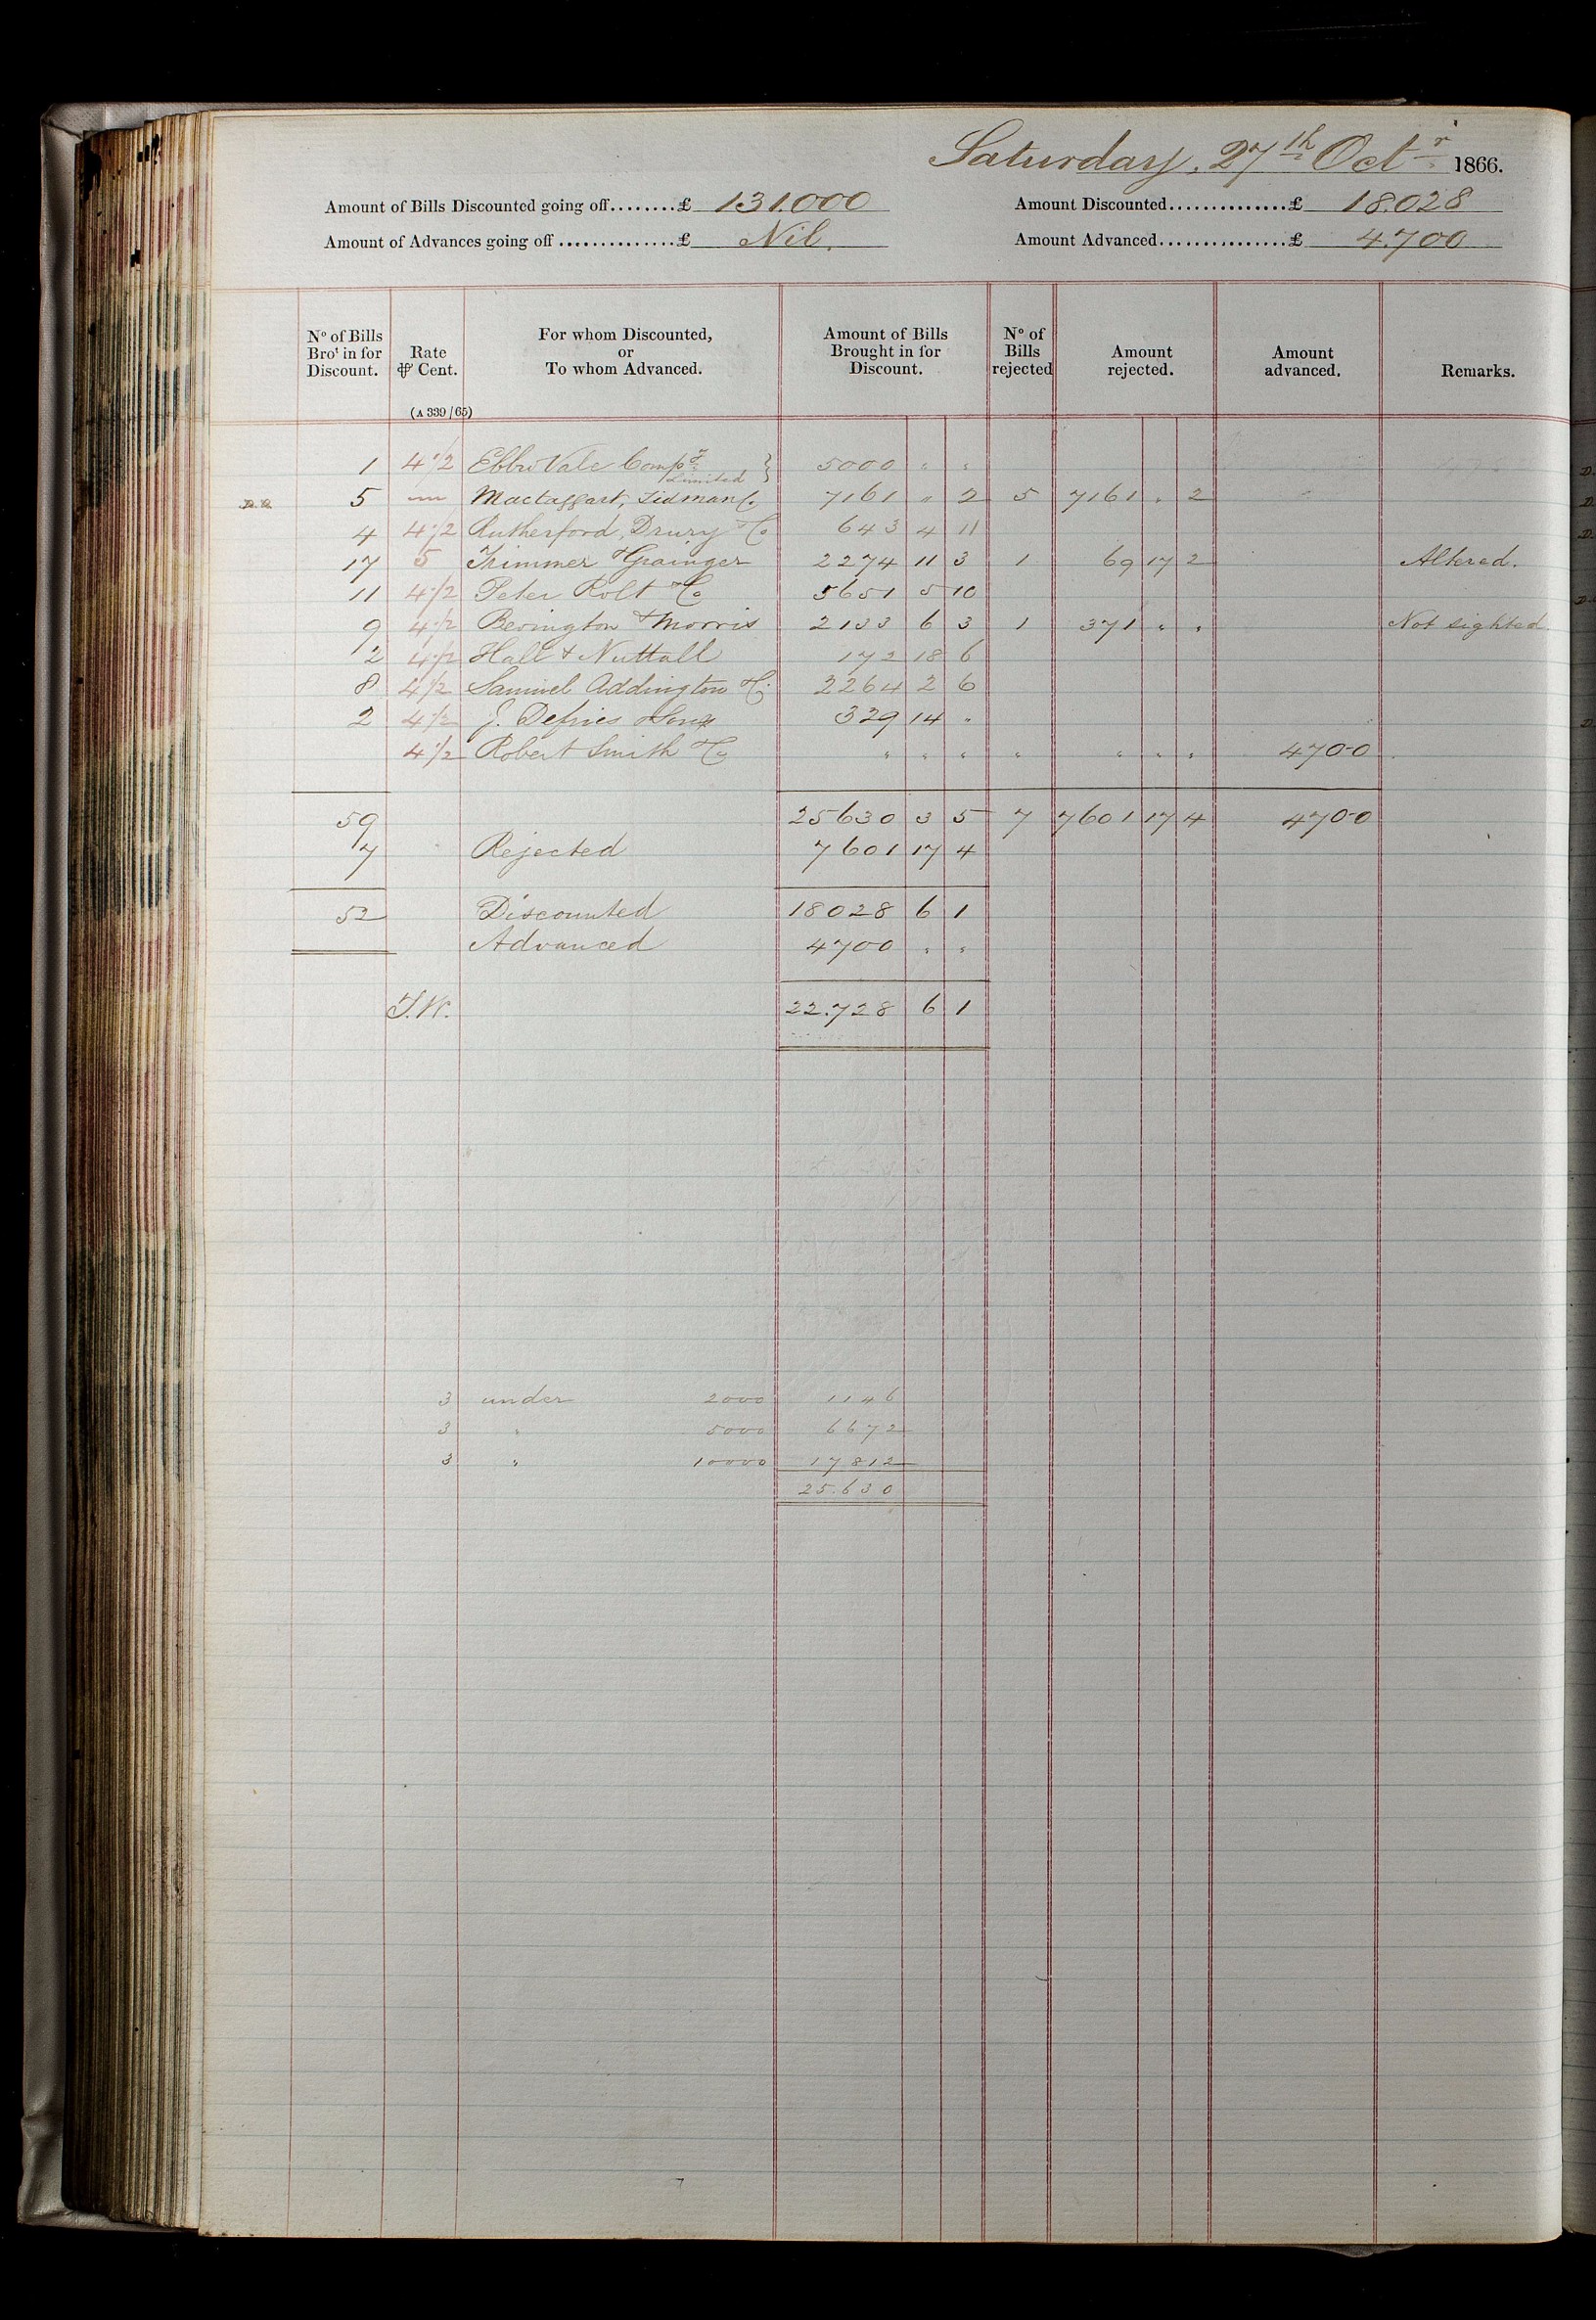 Saturday, 27th Octr 1866.
Amount of Bills Discounted going off........£ 131.000 Amount Discounted..............£ 18.028
Amount of Advances going off..............£ Nil. Amount Advanced................£ 4.700
No of Bills Brot in for Discount. Rate ⅌ Cent. For whom Discounted, or To whom Advanced. Amount of Bills Brought in for Discount. No of Bills rejected Amount rejected. Amount advanced. Remarks.
(A 339/65)
1 4 1/2 Ebbw Vale Compy Limited } 5000 " "
5 Mactaggart, Tidman Co 7161 " 2 5 7161 " 2
4 4 1/2 Rutherford, Drury & Co 643 4 11
17 5 Trimmer & Grainger 2274 11 3 1 69 17 2 Altered.
11 4 1/2 Peter Rolt & Co 5651 5 10
9 4 1/2 Bevington & Morris 2133 6 3 1 371 " " Not sighted
2 4 1/2 Hall & Nuttall 172 18 6
8 4 1/2 Samuel Addington & Co 2264 2 6
2 4 1/2 J. Defries & Sons 329 14 "
4 1/2 Robert Smith & Co " " " " " " " 4700
59 25630 3 5 7 7601 17 4 4700
7 Rejected 7601 17 4
52 Discounted 18028 6 1
Advanced 4700 " "
T.W. 22.728 6 1
3 under 2000 1146
3 " 5000 6672
3 " 10000 17812
25.630